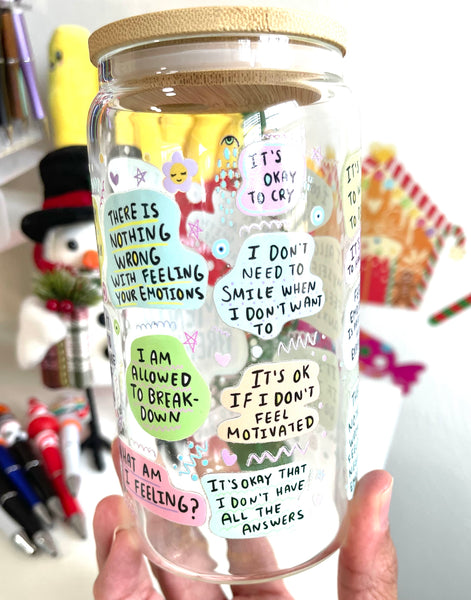 IT'S
OKAY
TO CRY
THERE IS
NOTHING
WRONG
WITH FEELING
YOUR EMOTIONS
I DON'T
NEED TO
SMILE WHEN
I DON'T WANT
TO
I AM
ALLOWED
TO BREAK-
DOWN
IT'S OK
IF I DON'T
FEEL
MOTIVATED
WHAT AM
I FEELING?
IT'S OKAY THAT
I DON'T HAVE
ALL THE
ANSWERS